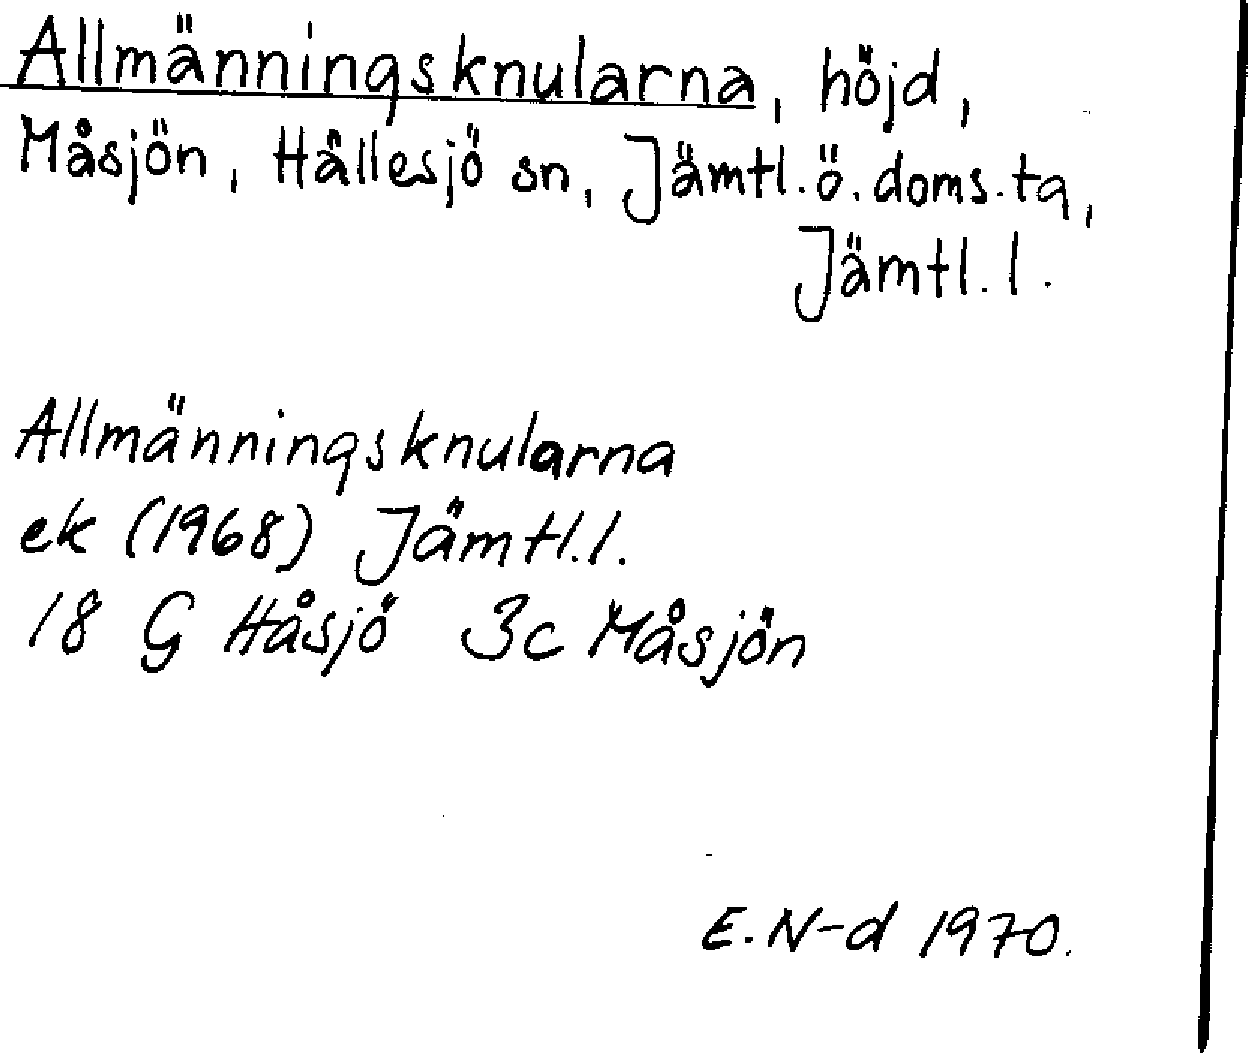 Allmänningsknularna, höjd,
Måsjön, Hällesjö sn, Jämtl.ö.doms.tg,
Jämtl.l.
Allmänningsknularna
ek (1968) Jämtl.l.
18 G Håsjö 3c Måsjön
E.N-d 1970.